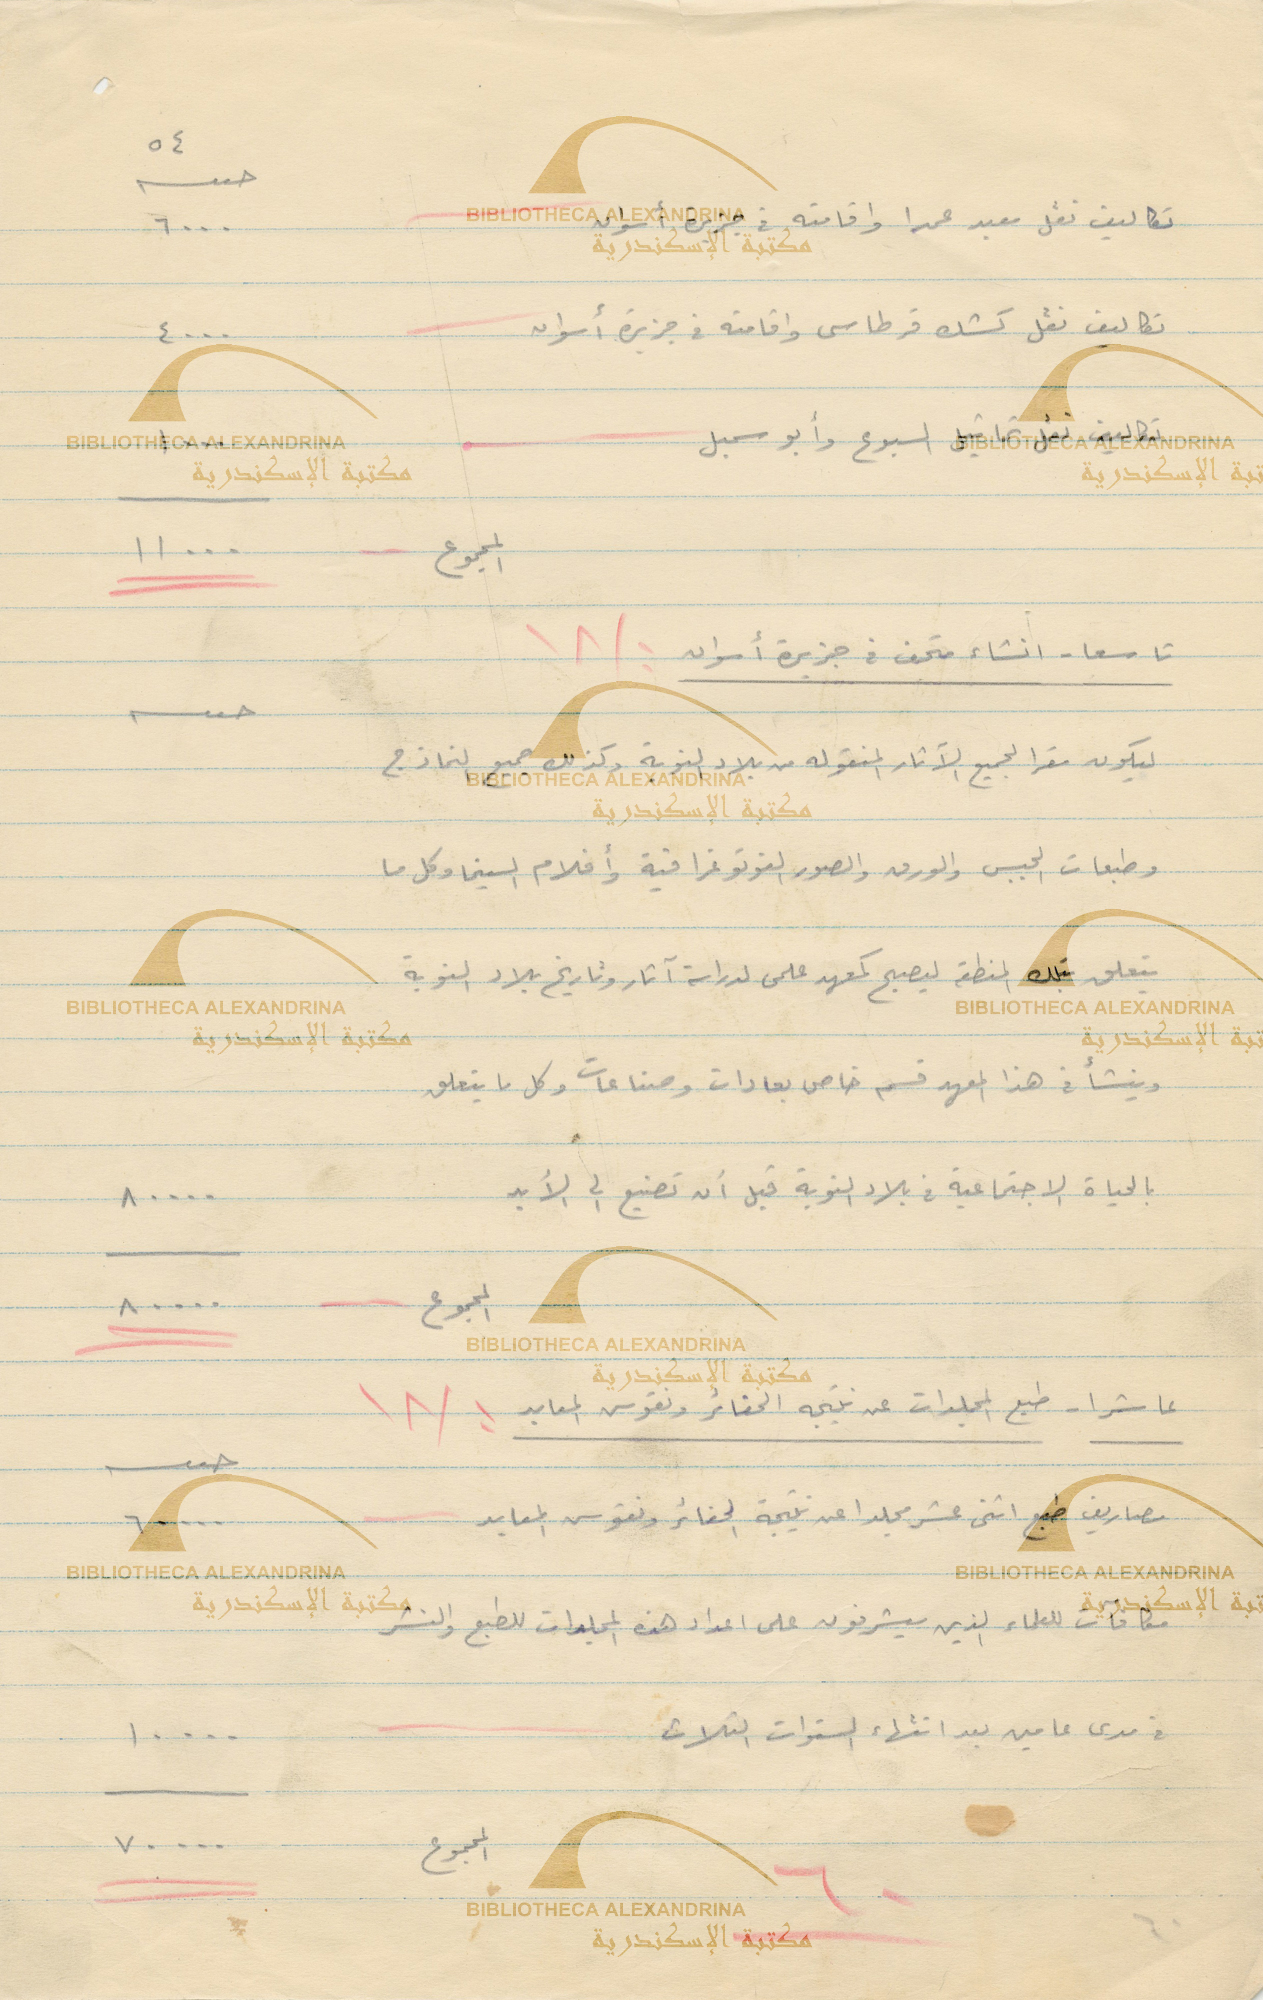 ٥٤
جنيه
تكاليف نقل معبد عمدا واقامته فى جزيرة أسوان ٦٠٠٠
تكاليف نقل كشك قرطاسى واقامته فى جزيرة أسوان ٤٠٠٠
تكاليف نقل تماثيل السبوع وأبو سمبل ١٠٠٠
المجموع ١١٠٠٠
تاسعا - انشاء متحف فى جزيرة أسوان
جنيه
ليكون مقرا لجميع الآثار المنقوله من بلاد النوبة وكذلك جميع النماذج
وطبعات الجبس والورق والصور الفوتوغرافية وأفلام السينما وكل ما
يتعلق بتلك المنطقة ليصبح كمعهد علمى لدراسة آثار وتاريخ بلاد النوبة
وينشأ فى هذا المعهد قسم خاص بعادات وصناعات وكل ما يتعلق
بالحياة الاجتماعية فى بلاد النوبة قبل أن تضيع الى الأبد ٨٠٠٠٠
المجموع ٨٠٠٠٠
عاشرا - طبع المجلدات عن نتيجه الحفائر ونقوش المعابد
جنيه
مصاريف طبع اثنى عشر مجلدا عن نتيجة الحفائر ونقوش المعابد ٦٠٠٠٠
مكافآت للعلماء الذين سيشرفون على اعداد هذه المجلدات للطبع والنشر
فى مدى عامين بعد انتهاء السنوات الثلاث ١٠٠٠٠
المجموع ٧٠٠٠٠
٦٠
٦٠
BIBLIOTHECA ALEXANDRINA
مكتبة الإسكندرية